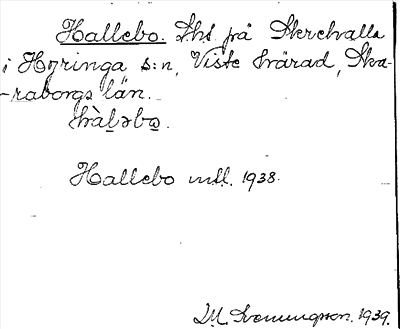 Hallebo. Ths på Skrehalla
i Hyringa s:n, Viste härad, Ska-
raborgs län.
hàləbo.
Hallebo mtl. 1938.
1939.